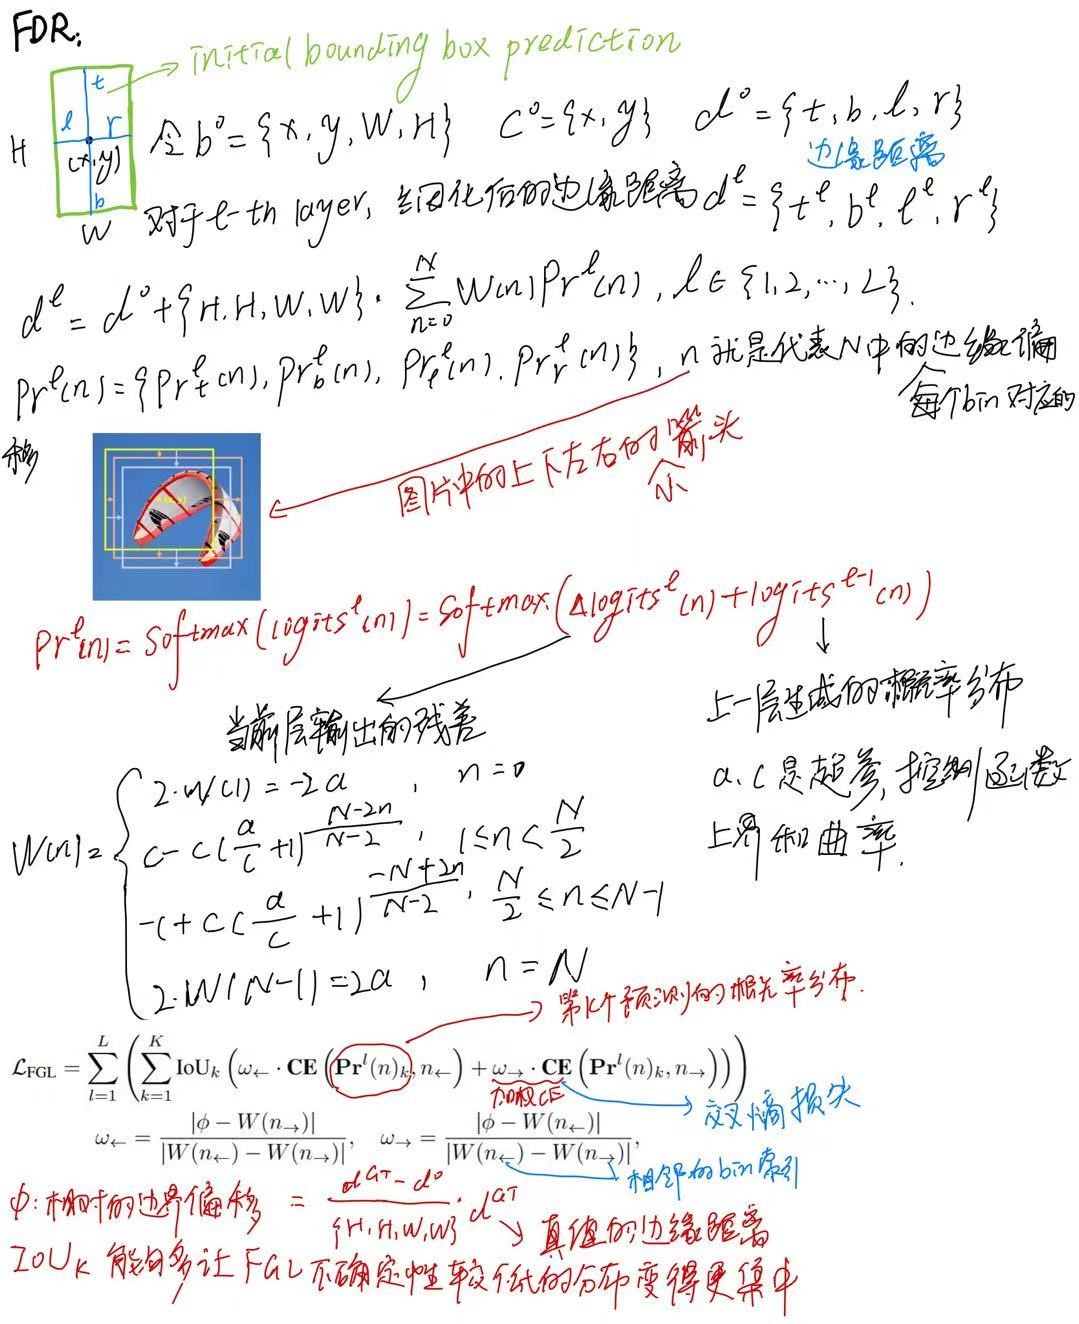 FDR:
initial bounding box prediction
H
t
l
r
(x,y)
b
W
令b⁰={x,y,W,H} C⁰={x,y} d⁰={t,b,l,r}
边缘距离
对于l-th layer, 细化后的边缘距离 dˡ={tˡ,bˡ,lˡ,rˡ}
dˡ = d⁰+{H,H,W,W}·∑_{n=0}^{N} W(n)Prˡ(n), l∈{1,2,…,L}.
Prˡ(n)={Prₜˡ(n), Pr_bˡ(n), Pr_lˡ(n), Pr_rˡ(n)}, n就是代表N中的边缘偏
每个bin对应的
移
图片中的上下左右的箭头
小
Prˡ(n)=Softmax(logitsˡ(n))=Softmax(Δlogitsˡ(n)+logitsˡ⁻¹(n))
当前层输出的残差
上一层生成的概率分布
a、c是超参,控制函数
上界和曲率.
W(n)=
2·W(1)=-2a , n=0
c-c(a/c+1)^{(N-2n)/(N-2)}, 1≤n<N/2
-c+c(a/c+1)^{(-N+2n)/(N-2)}, N/2≤n≤N-1
2·W(N-1)=2a , n=N
第k个预测的概率分布.
L_FGL = ∑_{l=1}^{L} (∑_{k=1}^{K} IoU_k (ω_← · CE (Prˡ(n)_k, n_←) + ω_→ · CE (Prˡ(n)_k, n_→)))
加权CE
交叉熵损失
ω_← = |φ − W(n_→)| / |W(n_←) − W(n_→)|, ω_→ = |φ − W(n_←)| / |W(n_←) − W(n_→)|,
相邻的bin索引
φ:相对的边界偏移 = (d^{GT}-d⁰)/{H,H,W,W} · d^{GT}
真值的边缘距离
IOU_k 能够让FGL不确定性较低的分布变得更集中